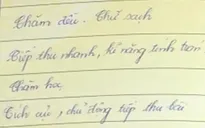 Chăm đều. Chữ sạch
Tiếp thu nhanh, kĩ năng tính toán
Chăm học
Tích cực, chủ động tiếp thu bài